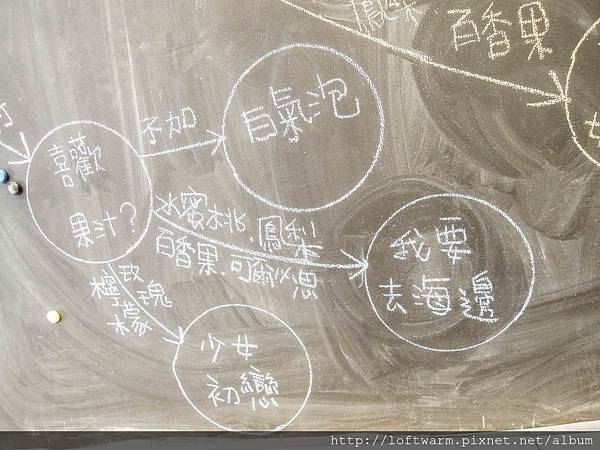 百香果
不加
白氣泡
喜歡
果汁?
水蜜桃、鳳梨
百香果、可爾必思
我要
去海邊
玫瑰
檸檬
少女
初戀
http://loftwarm.pixnet.net/album